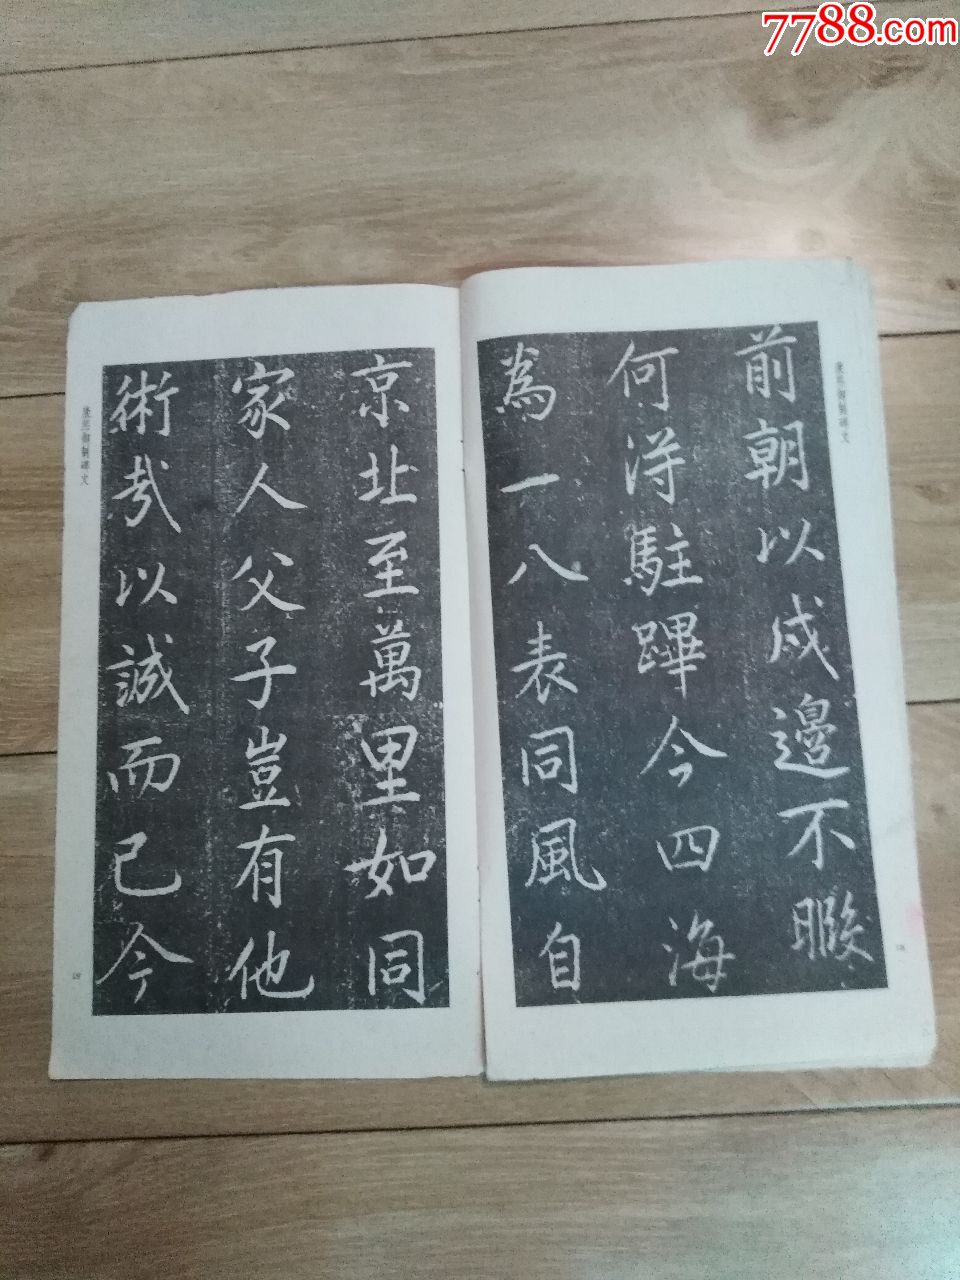 7788.com
康熙御制碑文
前朝以戍邊不暇
何淂駐蹕今四海
為一八表同風自
京北至萬里如同
家人父子豈有他
術哉以誠而已今
康熙御制碑文